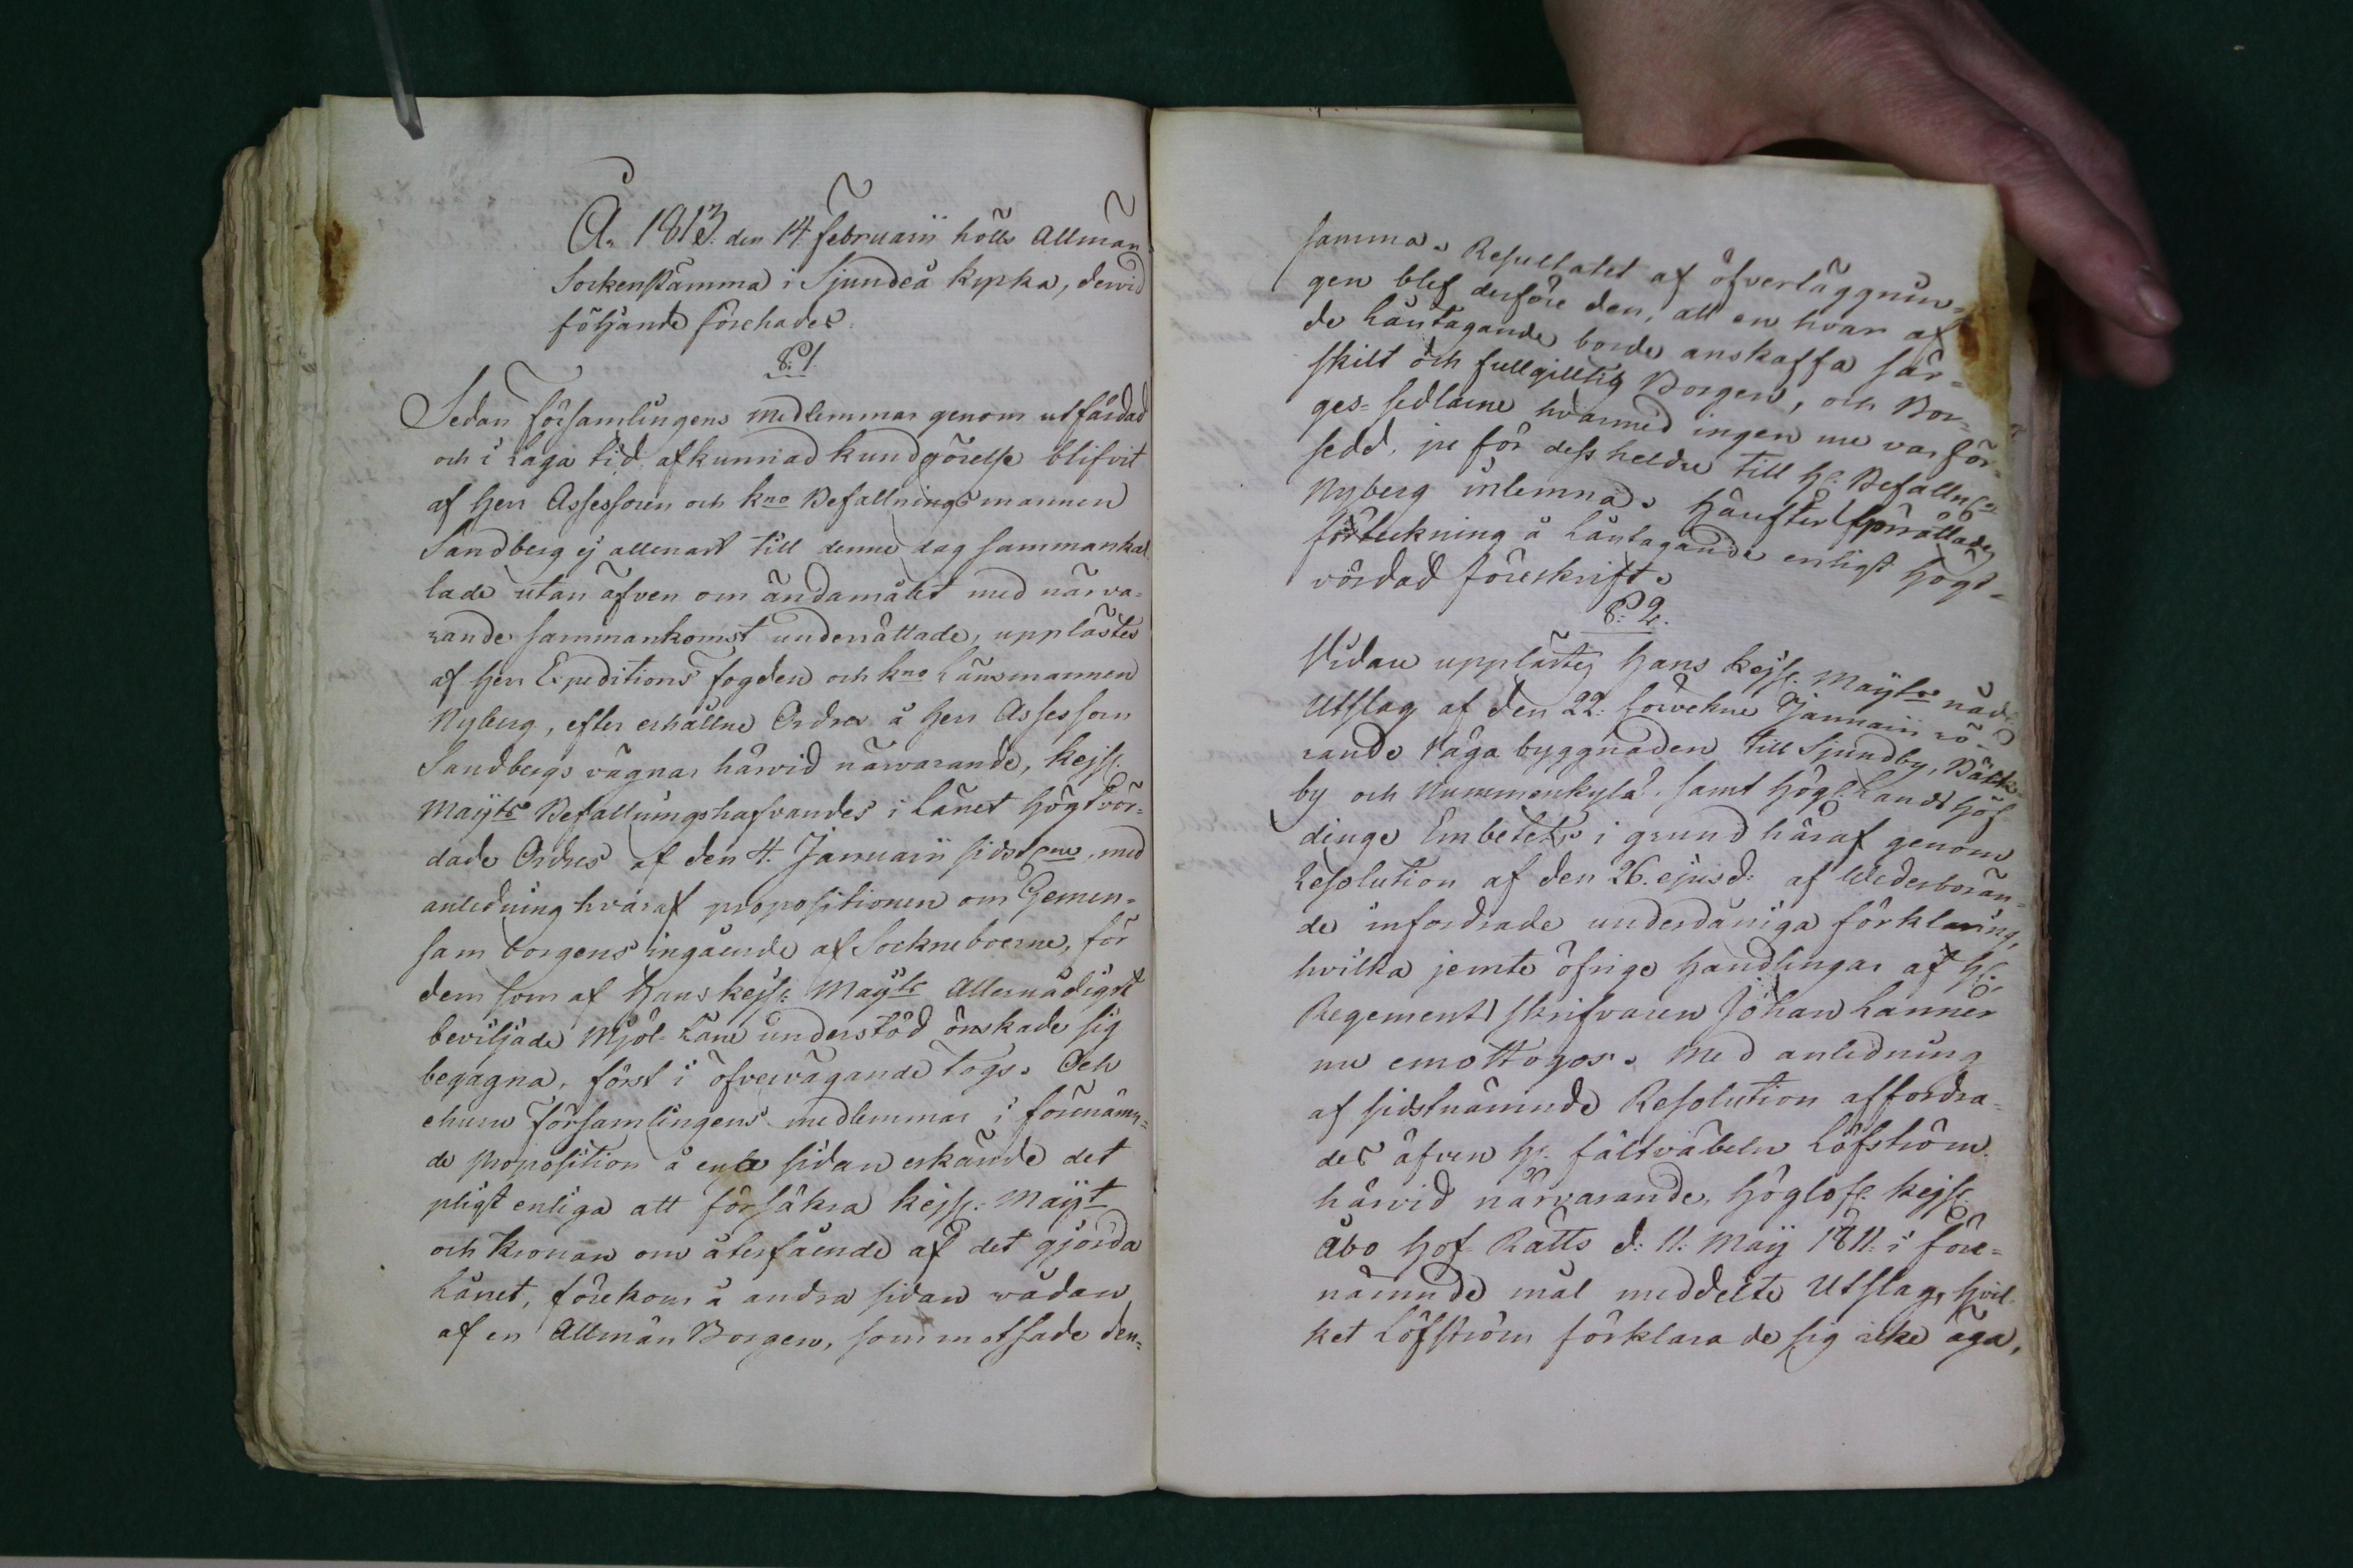 Åe 1813. den 14 Februarii hölls Allmän
Sockenstämma i Sjundeå kyrka, dervid
följande förehades.
§. 1.
Sedan Församlingens medlemmar genom utfärdad
och i laga tid afkunnad kundgörelse blifvit
af Herr Assessoren och kno Befallningsmannen
Sandberg ej allenast till denne dag sammankal
lade utan äfven om ändamålet med närva-
rande sammankomst underrättade, upplästes
af Herr Expeditions fogden och kno Länsmannen
Nyberg, efter erhållne Ordres å Herr Assessorn
Sandbergs vägnar härvid närvarande, Kejsl.
Maÿts Befallningshafvandes i Länet högtvör-
dade Ordres af den 4. Januarii sidstl. med
anledning hvaraf propositionen om Gemen-
sam borgens ingående af Sockneboerne, för
dem som af Hans Kejsl. Maÿts Allernådigst
beviljade Mjöl-Låne understöd önskade sig
begagna, först i öfvervägande togs. Och
ehuru församlingens medlemmar i förenämn-
de proposition å ena sidan erkände det
pligt enliga att försäkra Kejsl. Maÿt
och Kronan om återfående af det gjorda
Lånet, förekom å andra sidan vådan
af en Allmän Borgen, som motsade den-
samma. Resultatet af öfverläggnin-
gen blef derföre den, att en hvar af
de Låntagande borde anskaffa sär-
skilt och fullgilltig Borgen, och Bor-
ges-sedlarne hvarmed ingen nu var för-
sedd, ju för dess heldre till Hr. Befallnsm
Nyberg inlemna. Härefter förrättades
förteckning å Låntagande enligt Högt-
vördad föreskrift.
§. 2.
Vidare upplästes Hans Kejsl. Maÿts nåd.
Utslag af den 22. förvekne Januarii rö-
rande Våga byggnaden till Sjundby, Bäck-
by och Nummenkylä, samt Högl. Lands Höf
dinge Embetets i grund häraf genom
Resolution af den 26. ejusd: af Wederböran-
de infordrade underdåniga förklaring,
hvilka jemte öfrige handlingar af Hr.
Regements skrifvaren Johan Lanner
nu emottogos. Med anledning
af sidstnämnde Resolution affordra-
des äfven Hr. fältväbeln Löfström
härvid närvarande, Höglofl. Kejsl.
Åbo Hof-Rätts d: 11. Maÿ 1811. i före-
nämnde mål meddelte Utslag, hvil-
ket Löfström förklarade sig icke äga,